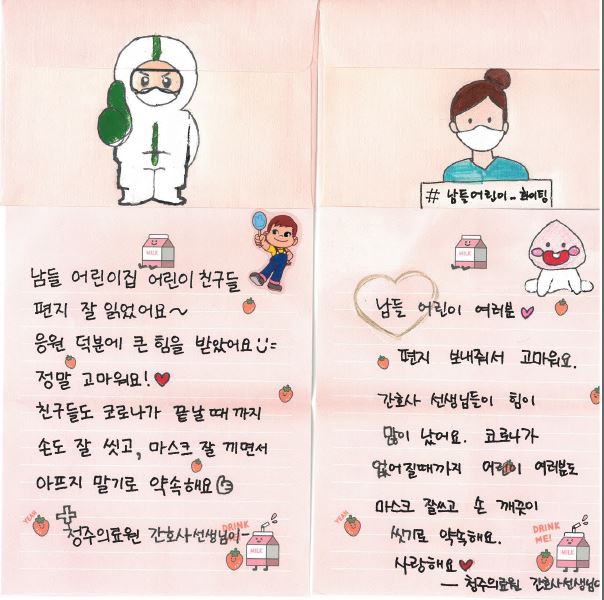 MILK
남들 어린이집 어린이 친구들
편지 잘 읽었어요~
응원 덕분에 큰 힘을 받았어요
정말 고마워요!
친구들도 코로나가 끝날 때 까지
손도 잘 씻고, 마스크 잘 끼면서
아프지 말기로 약속해요
청주의료원 간호사선생님이-
YEAH
DRINK
MILK
# 남들어린이.. 화이팅
MILK
남들 어린이 여러분
편지 보내줘서 고마워요.
간호사 선생님들이 힘이
많이 났어요. 코로나가
없어질때까지 어린이 여러분도
마스크 잘쓰고 손 깨끗이
씻기로 약속해요.
사랑해요
— 청주의료원 간호사선생님이
YEAH
DRINK
ME!
MILK